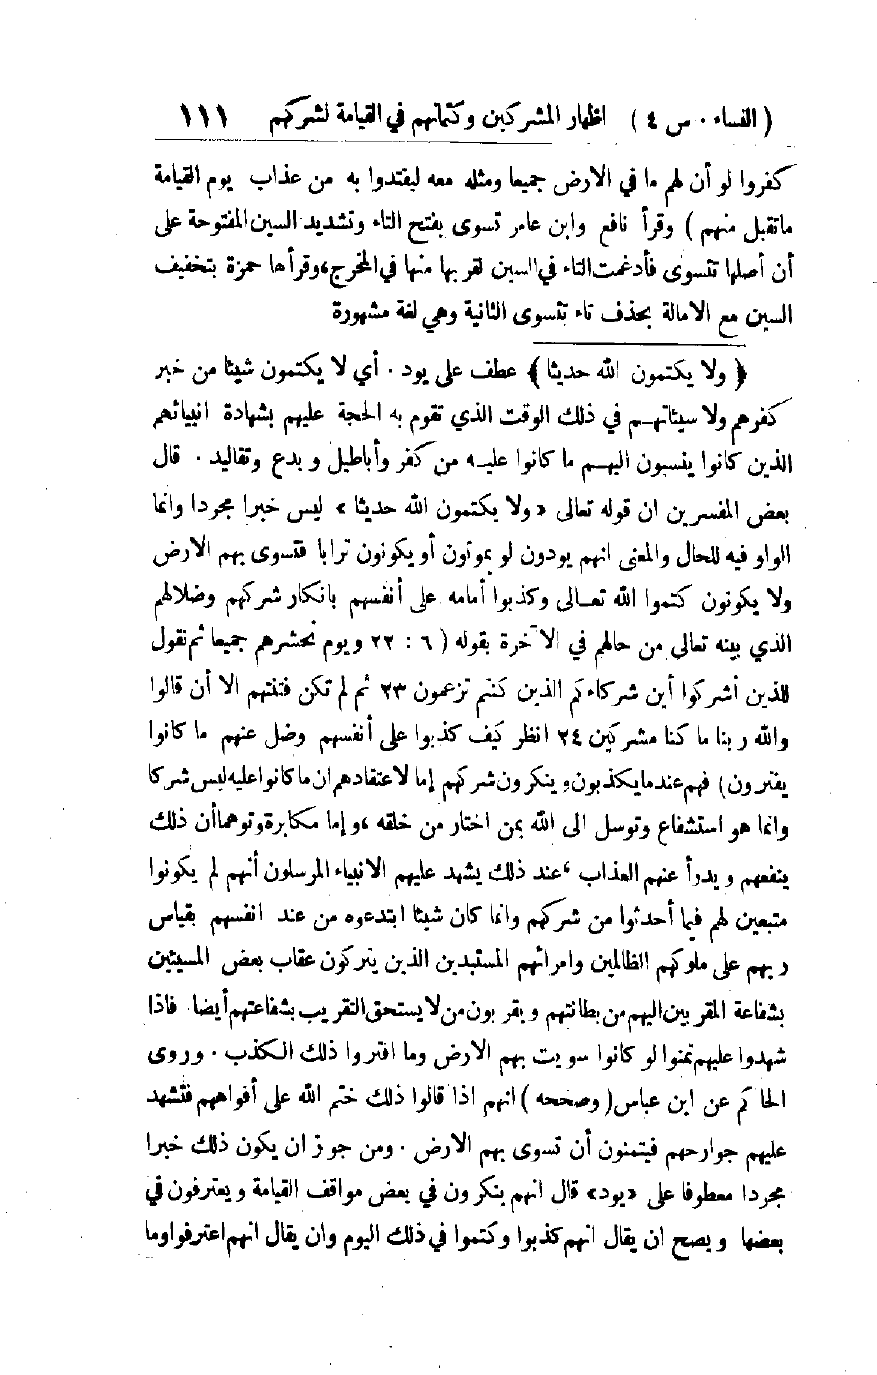 ( النساء . س ٤ ) اظهار المشركين وكتمانهم في القيامة لشركهم ١١١
كفروا لو أن لهم ما في الارض جميعا ومثله معه ليفتدوا به من عذاب يوم القيامة
ماتقبل منهم ) وقرأ نافع وابن عامر تسوى بفتح التاء وتشديد السين المفتوحة على
أن أصلها تتسوى فأدغمت التاء في السين لقربها منها في المخرج، وقرأها حمزة بتخفيف
السين مع الامالة بحذف تاء تتسوى الثانية وهي لغة مشهورة
﴿ ولا يكتمون الله حديثا ﴾ عطف على يود . أي لا يكتمون شيئا من خبر
كفرهم ولا سيئاتهم في ذلك الوقت الذي تقوم به الحجة عليهم بشهادة انبيائهم
الذين كانوا ينسبون اليهم ما كانوا عليه من كفر وأباطيل وبدع وتقاليد . قال
بعض المفسرين ان قوله تعالى « ولا يكتمون الله حديثا » ليس خبرا مجردا وانما
الواو فيه للحال والمعنى انهم يودون لو يموتون أو يكونون ترابا فتسوى بهم الارض
ولا يكونون كتموا الله تعالى وكذبوا أمامه على أنفسهم بانكار شركهم وضلالهم
الذي بينه تعالى من حالهم في الآخرة بقوله ( ٦ : ٢٢ ويوم نحشرهم جميعا ثم نقول
للذين أشركوا أين شركاءكم الذين كنتم تزعمون ٢٣ ثم لم تكن فتنتهم الا أن قالوا
والله ربنا ما كنا مشركين ٢٤ انظر كيف كذبوا على أنفسهم وضل عنهم ما كانوا
يفترون) فهم عند ما يكذبون وينكرون شركهم إما لاعتقادهم ان ما كانوا عليه ليس شركا
وانما هو استشفاع وتوسل الى الله بمن اختار من خلقه ، وإما مكابرة وتوهما أن ذلك
ينفعهم ويدرأ عنهم العذاب ، عند ذلك يشهد عليهم الانبياء المرسلون أنهم لم يكونوا
متبعين لهم فيما أحدثوا من شركهم وانما كان شيئا ابتدعوه من عند انفسهم بقياس
ربهم على ملوكهم الظالمين وامرائهم المستبدين الذين يتركون عقاب بعض المسيئين
بشفاعة المقربين اليهم من بطانتهم ويقربون من لا يستحق التقريب بشفاعتهم أيضا . فاذا
شهدوا عليهم تمنوا لو كانوا سويت بهم الارض وما افتروا ذلك الكذب . وروى
الحاكم عن ابن عباس ( وصححه ) انهم اذا قالوا ذلك ختم الله على أفواههم فتشهد
عليهم جوارحهم فيتمنون أن تسوى بهم الارض . ومن جوز ان يكون ذلك خبرا
مجردا معطوفا على «يود» قال انهم ينكرون في بعض مواقف القيامة ويعترفون في
بعضها ويصح ان يقال انهم كذبوا وكتموا في ذلك اليوم وان يقال انهم اعترفوا وما